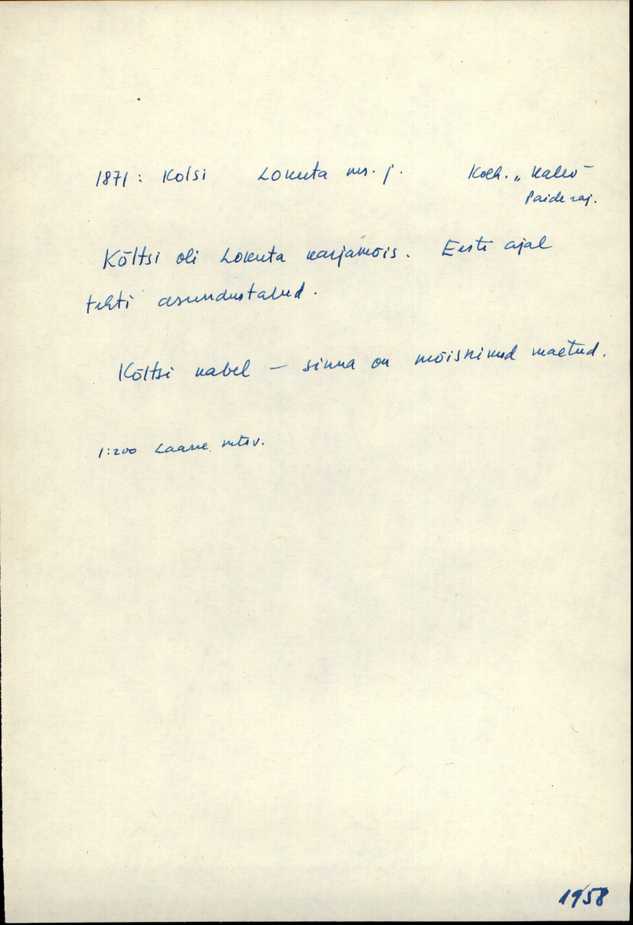 1871: Kolsi Lokuta ms. j. Kolh. „Kalev"
Paide raj.
Kõltsi oli Lokuta karjamõis. Eesti ajal
tehti asundustalud.
Kõltsi kabel – sinna on mõisnikud maetud.
1:200 Laane mtsv.
1958